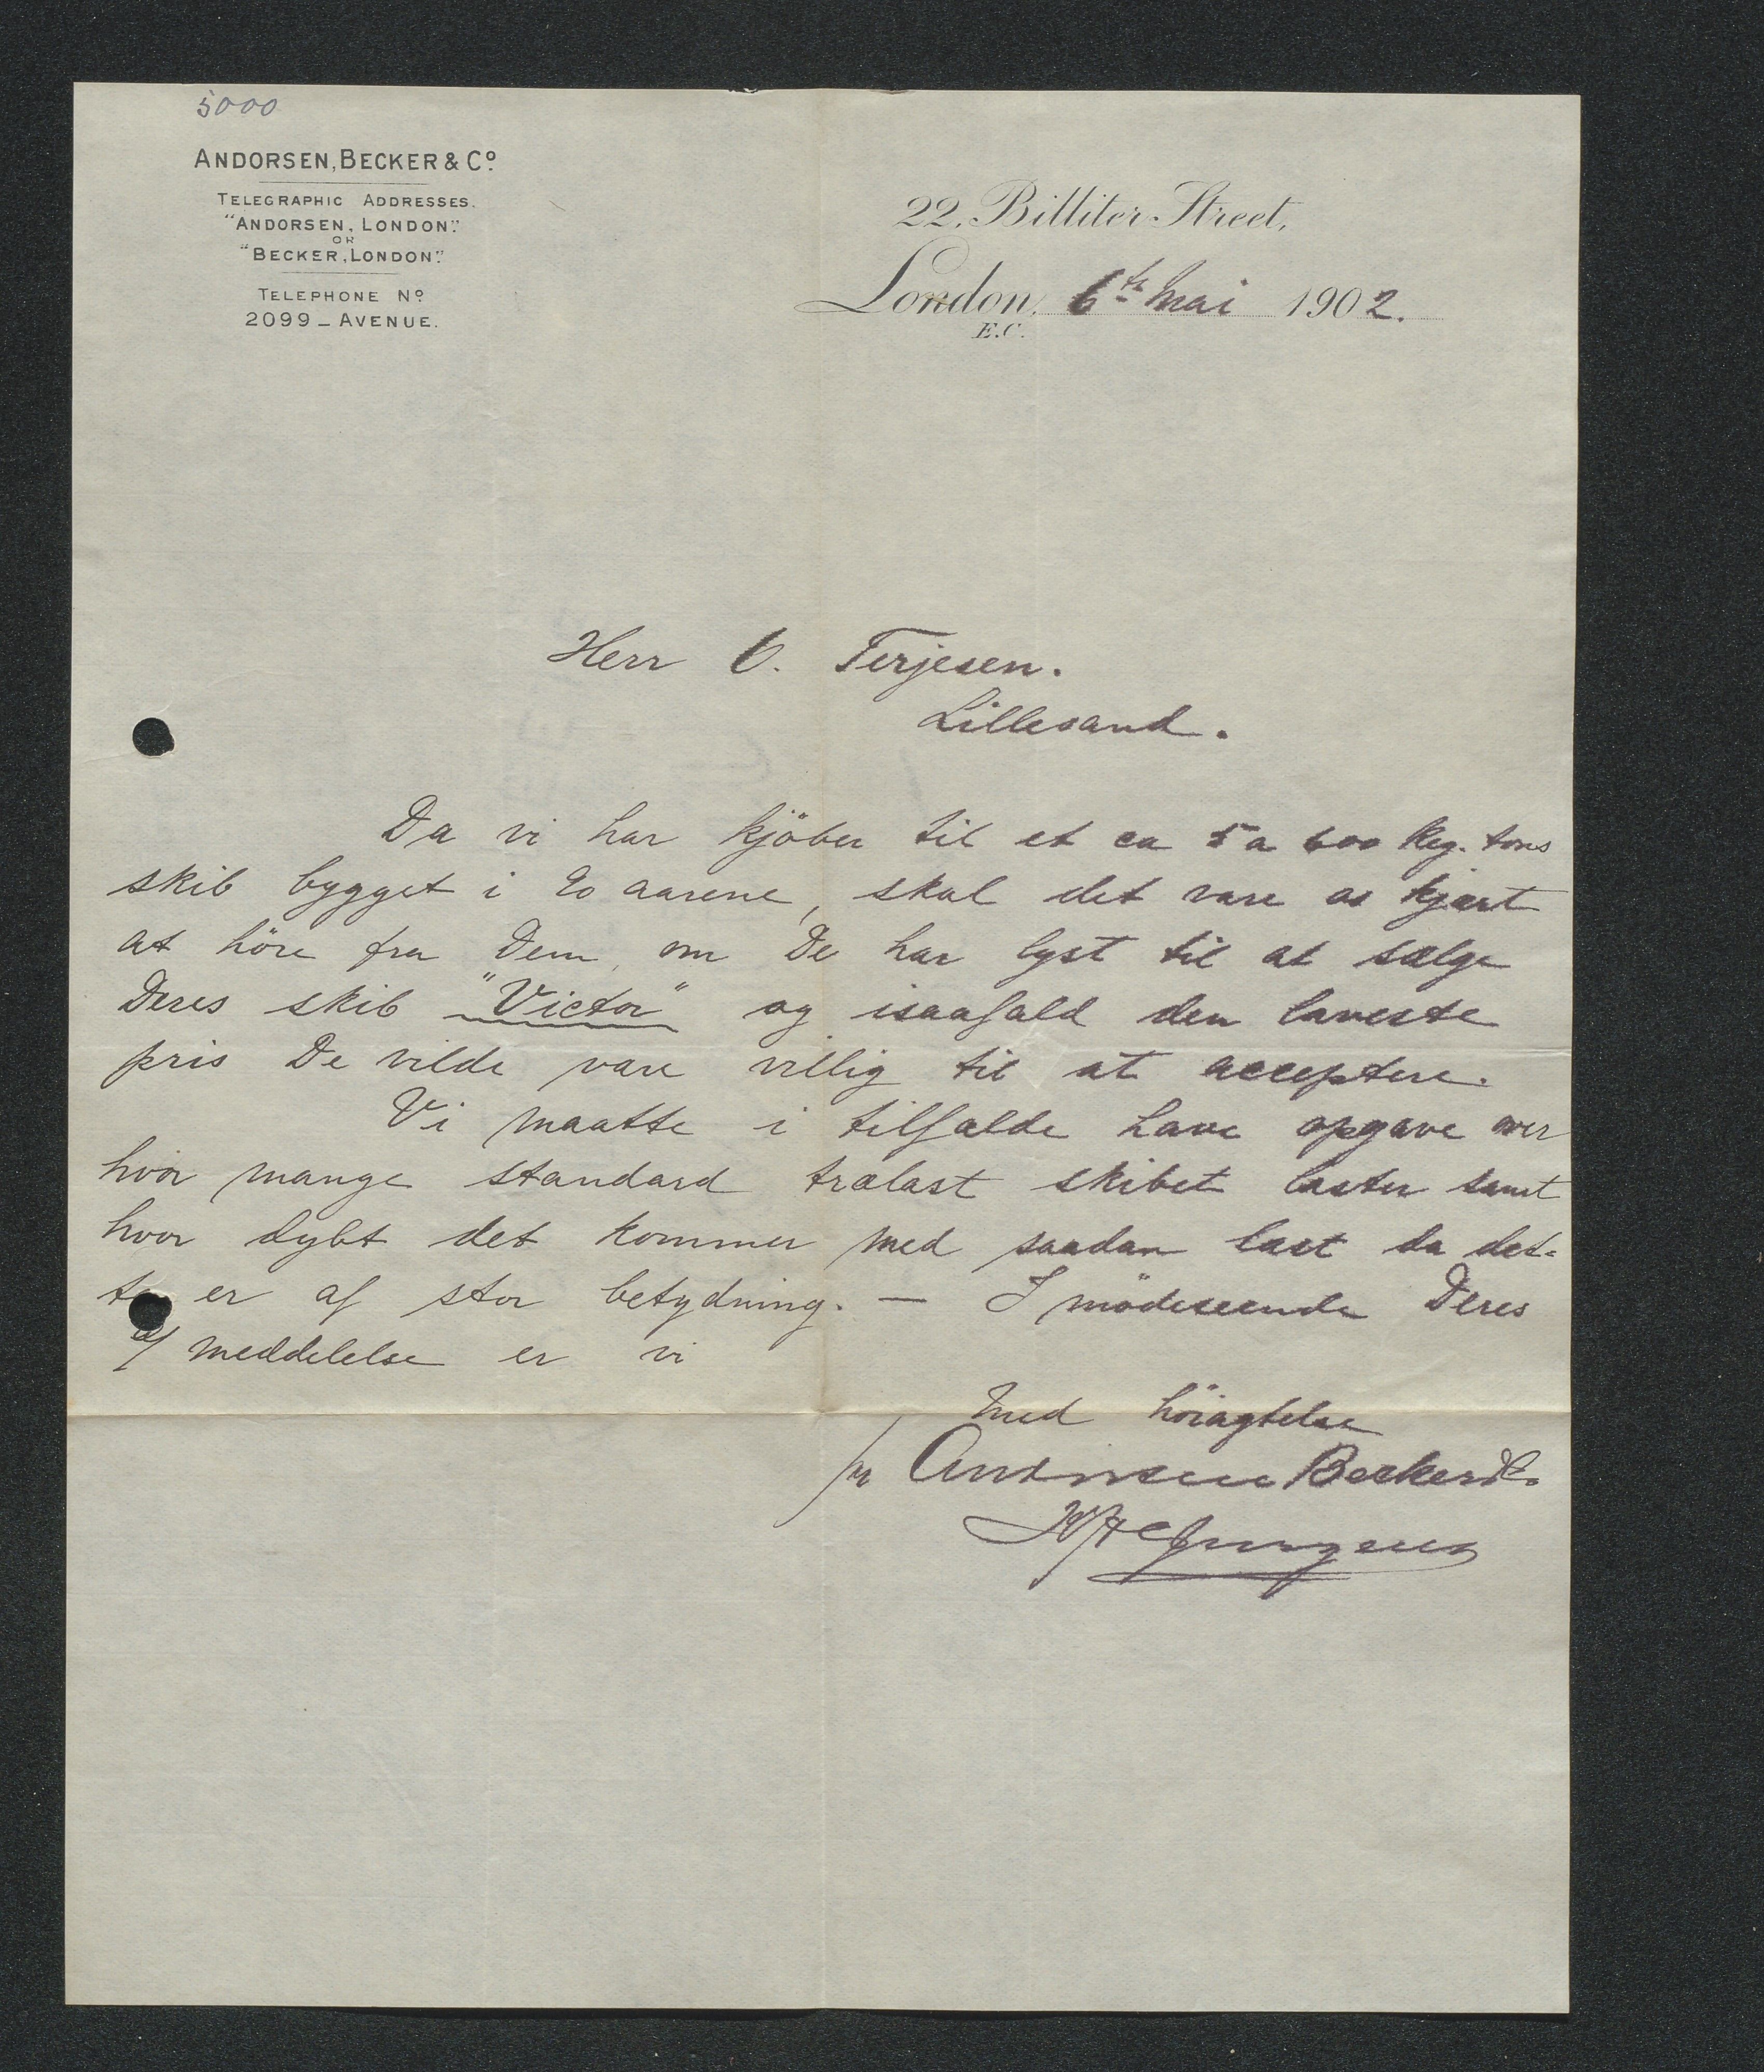 5000
ANDORSEN, BECKER & Cº
TELEGRAPHIC ADDRESSES.
"ANDORSEN, LONDON".
OR
"BECKER, LONDON".
TELEPHONE Nº
2099 _ AVENUE.
22, Billiter Street,
London, 6te Mai 1902.
E.C.
Herr O. Terjesen.
Lillesand.
Da vi har kjöber til et ca 5 a 600 Reg. tons
skib bygget i 80 aarene, skal det være os kjært
at höre fra Dem, om De har lyst til at sælge
Deres skib "Victor" og isaafald den laveste
pris De vilde være villig til at acceptere.
Vi maatte i tilfælde have opgave over
hvor mange standard trælast skibet laster samt
hvor dybt det kommer med saadan last da det-
te er af stor betydning. — I mödeseende Deres
meddelelse er vi
Med höiagtelse
pr Andorsen Becker & Co.